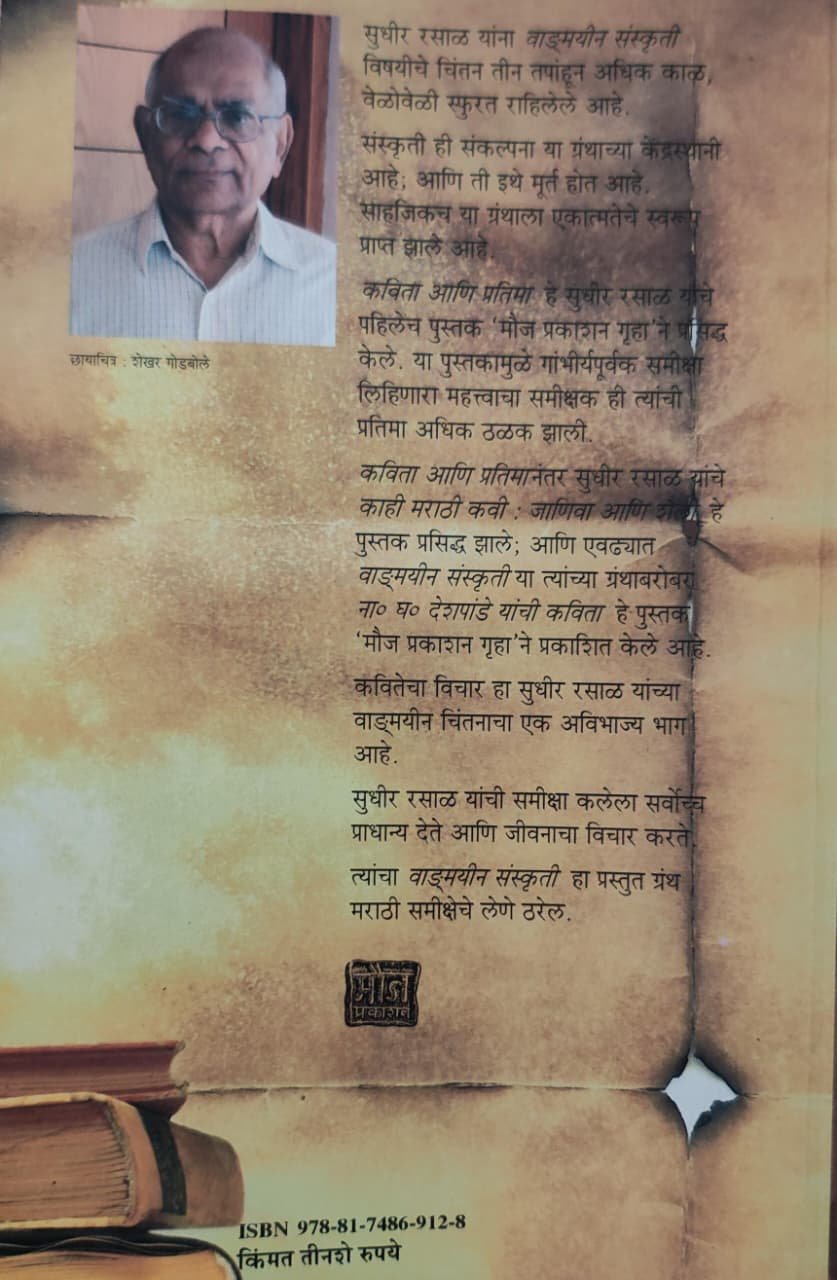 सुधीर रसाळ यांना वाङ्‌मयीन संस्कृती
विषयीचे चिंतन तीन तपांहून अधिक काळ,
वेळोवेळी स्फुरत राहिलेले आहे.
संस्कृती ही संकल्पना या ग्रंथाच्या केंद्रस्थानी
आहे; आणि ती इथे मूर्त होत आहे.
साहजिकच या ग्रंथाला एकात्मतेचे स्वरूप
प्राप्त झाले आहे.
कविता आणि प्रतिमा हे सुधीर रसाळ यांचे
पहिलेच पुस्तक ‘मौज प्रकाशन गृहा’ने प्रसिद्ध
केले. या पुस्तकामुळे गांभीर्यपूर्वक समीक्षा
लिहिणारा महत्त्वाचा समीक्षक ही त्यांची
प्रतिमा अधिक ठळक झाली.
कविता आणि प्रतिमानंतर सुधीर रसाळ यांचे
काही मराठी कवी : जाणिवा आणि शैली हे
पुस्तक प्रसिद्ध झाले; आणि एवढ्यात
वाङ्‌मयीन संस्कृती या त्यांच्या ग्रंथाबरोबर
ना० घ० देशपांडे यांची कविता हे पुस्तक
‘मौज प्रकाशन गृहा’ने प्रकाशित केले आहे.
कवितेचा विचार हा सुधीर रसाळ यांच्या
वाङ्‌मयीन चिंतनाचा एक अविभाज्य भाग
आहे.
सुधीर रसाळ यांची समीक्षा कलेला सर्वोच्च
प्राधान्य देते आणि जीवनाचा विचार करते.
त्यांचा वाङ्‌मयीन संस्कृती हा प्रस्तुत ग्रंथ
मराठी समीक्षेचे लेणे ठरेल.
छायाचित्र : शेखर गोडबोले
मौज
प्रकाशन
ISBN 978-81-7486-912-8
किंमत तीनशे रुपये